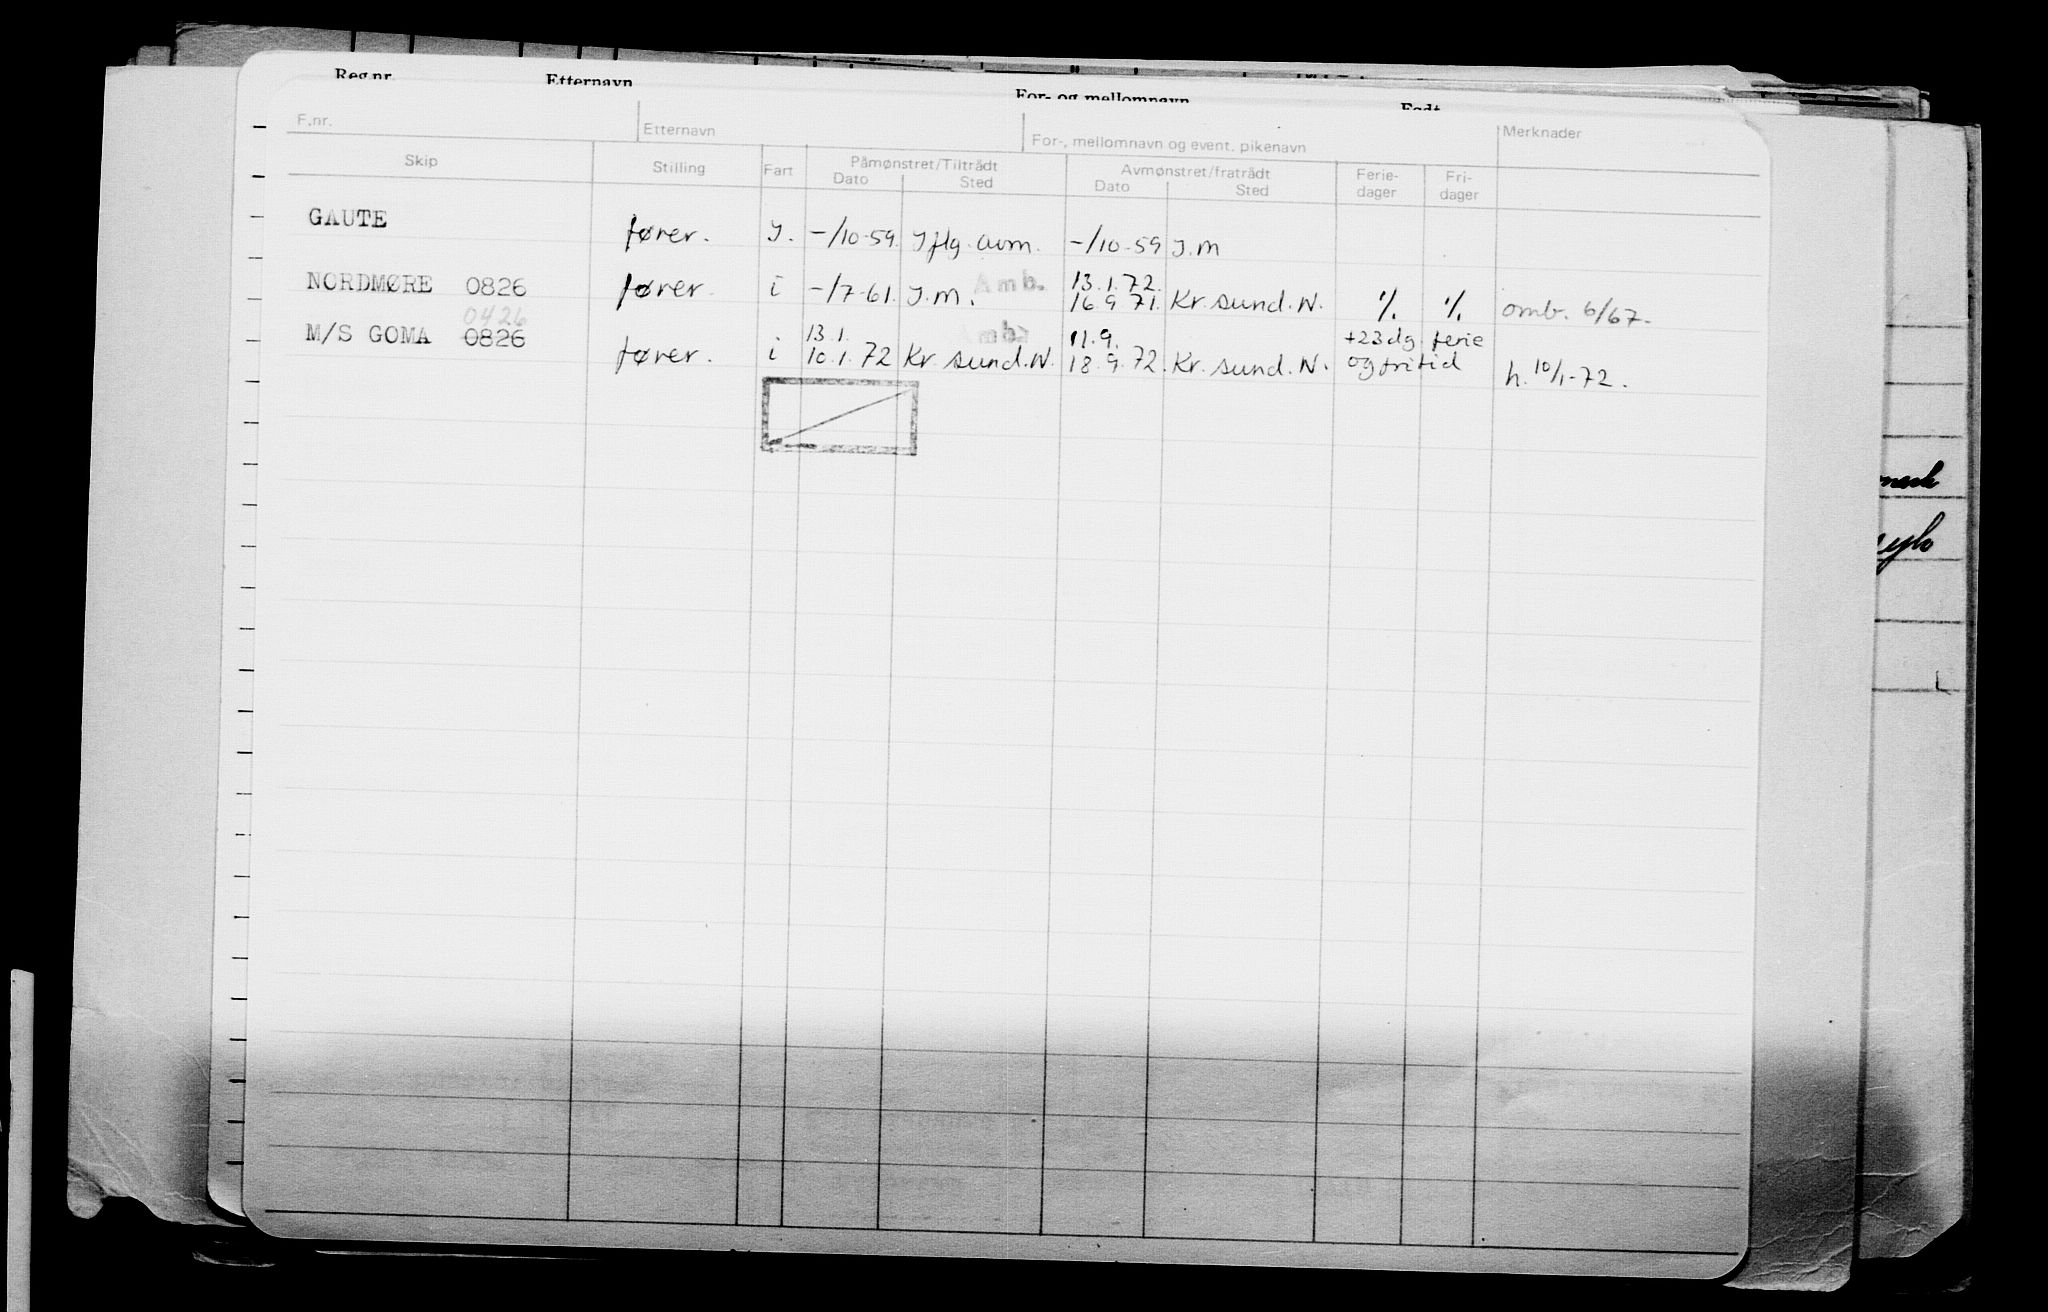 Reg.nr. Etternavn For- og mellomnavn Født
F.nr. Etternavn For-, mellomnavn og event. pikenavn Merknader
Skip Stilling Fart Påmønstret/Tiltrådt Avmønstret/fratrådt Ferie- Fri-
Dato Sted Dato Sted dager dager
GAUTE fører. I. -/10-59. Iflg. avm. -/10-59 I.m
Amb. 13.1.72.
NORDMØRE 0826 fører. i -/7-61. I.m. 16.9.71. Kr.sund.N. % % omb. 6/67.
0426 13.1. Amb 11.9. +23dg ferie
M/S GOMA 0826 fører. i 10.1.72 Kr.sund.N. 18.9.72. Kr.sund.N. og fritid h. 10/1-72.